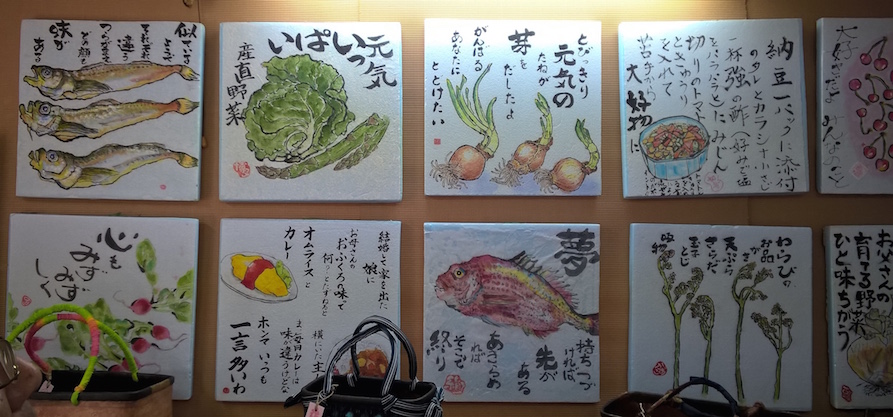 似ている
ようで
それぞれ
違う
つらがまえ
どの顔も
味が
ある
元気
いっぱい
産直野菜
とびっきり
元気の
たねが
芽を
だしたよ
がんばる
あなたに
とどけたい
納豆一パックに添付
のタレとカラシ＋小さじ
一杯強の酢(好みで塩
切りのトマト
を入れて
大好物に
大好きだよ
みんなのこと
心も
みずみず
しく
結婚して家を出た
娘に
お母さんの
おふくろの味って
オムライスと
カレー
横にいた主
毎日カレーは
味が違うけどな
ホンマいつも
一言多いわ
夢
持ちつづ
ければ
先が
ある
あきらめ
れば
そこで
終り
わらびの
お品
天ぷら
お父さんの
育てる野菜
ひと味ちがう